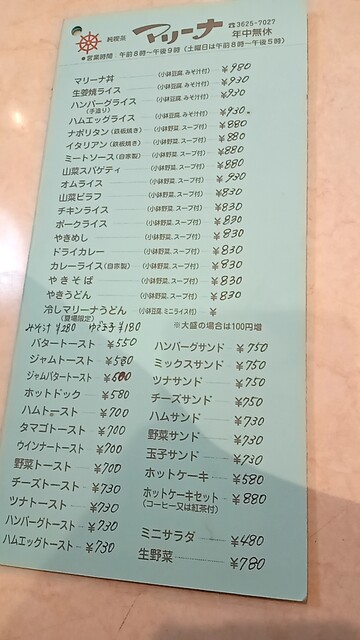 純喫茶 マリーナ ☎3625-7027 年中無休
●営業時間：午前8時～午後9時（土曜日は午前8時～午後5時）
マリーナ丼 (小鉢豆腐,みそ汁付) ¥980
生姜焼ライス (小鉢豆腐,みそ汁付) ¥930
ハンバーグライス (小鉢豆腐,みそ汁付) ¥930
(手造り)
ハムエッグライス (小鉢豆腐,みそ汁付) ¥930
ナポリタン(鉄板焼き) (小鉢野菜,スープ付) ¥880
イタリアン(鉄板焼き) (小鉢野菜,スープ付) ¥880
ミートソース(自家製) (小鉢野菜,スープ付) ¥880
山菜スパゲティ (小鉢野菜,スープ付) ¥880
オムライス (小鉢野菜,スープ付) ¥930
山菜ピラフ (小鉢野菜,スープ付) ¥830
チキンライス (小鉢野菜,スープ付) ¥830
ポークライス (小鉢野菜,スープ付) ¥830
やきめし (小鉢野菜,スープ付) ¥830
ドライカレー (小鉢野菜,スープ付) ¥830
カレーライス(自家製) (小鉢野菜,スープ付) ¥830
やきそば (小鉢野菜,スープ付) ¥830
やきうどん (小鉢野菜,スープ付) ¥830
冷しマリーナうどん (小鉢豆腐,ミニライス付) ¥
(夏場限定)
みそ汁 ¥280 ゆで玉子 ¥180 ※大盛の場合は100円増
バタートースト ¥550
ジャムトースト ¥580
ジャムバタートースト ¥600
ホットドック ¥580
ハムトースト ¥700
タマゴトースト ¥700
ウインナートースト ¥700
野菜トースト ¥700
チーズトースト ¥730
ツナトースト ¥730
ハンバーグトースト ¥730
ハムエッグトースト ¥730
ハンバーグサンド ¥750
ミックスサンド ¥750
ツナサンド ¥750
チーズサンド ¥750
ハムサンド ¥730
野菜サンド ¥730
玉子サンド ¥730
ホットケーキ ¥580
ホットケーキセット ¥880
(コーヒー又は紅茶付)
ミニサラダ ¥480
生野菜 ¥780